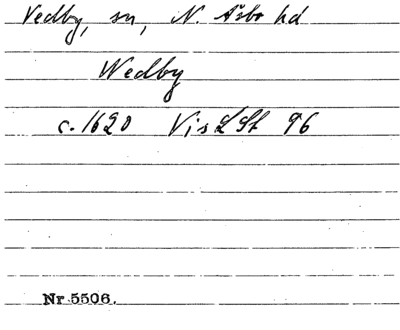 Vedby, sn, N. Åsbo hd
Wedby
c. 1620 Vis LSt 96
Nr 5506.